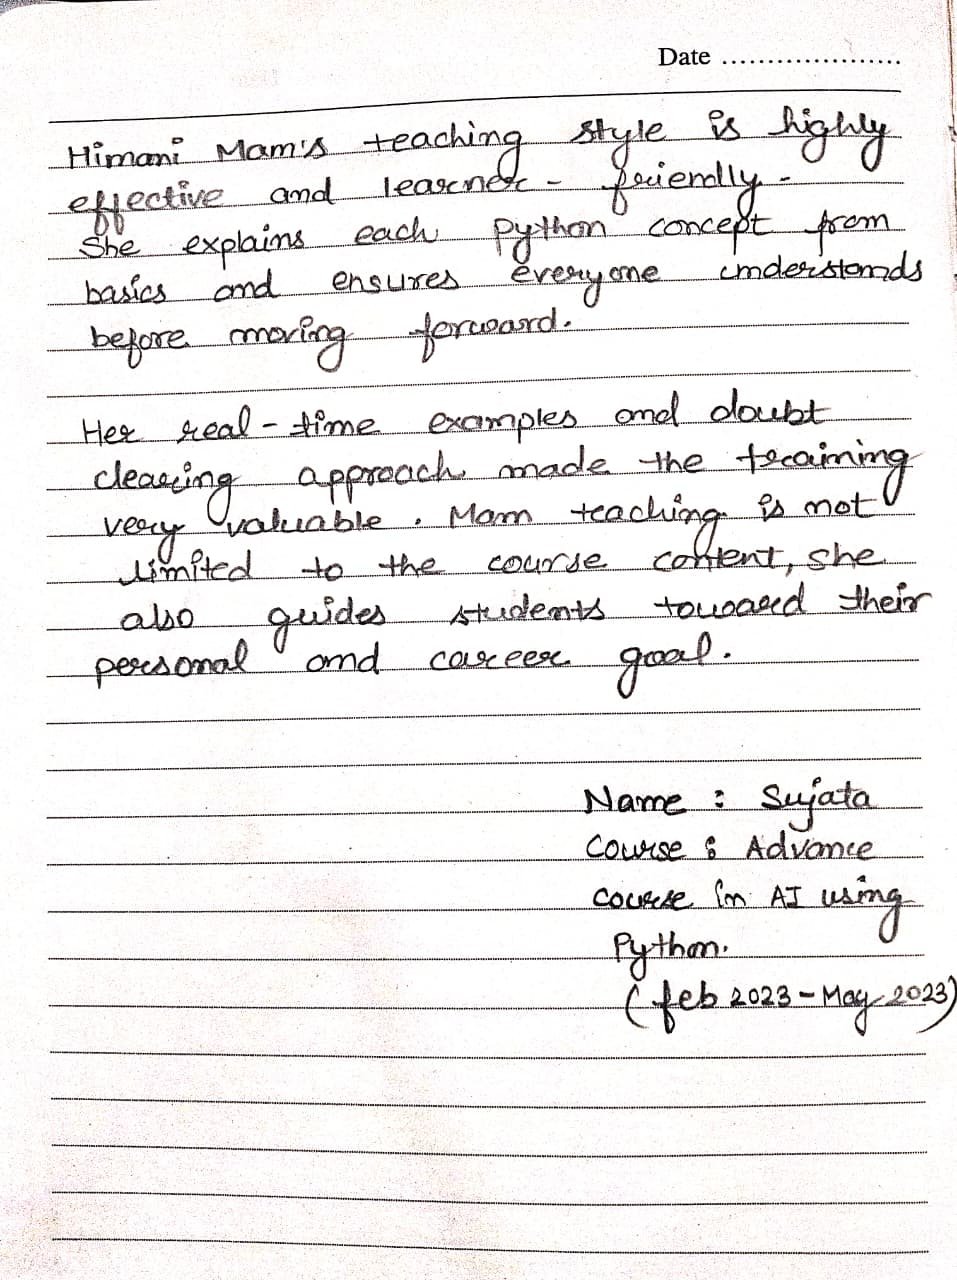 Date ....................
Himani Mam's teaching style is highly
effective and learner-friendly.
She explains each Python concept from
basics and ensures everyone understands
before moving forward.
Her real-time examples and doubt
clearing approach made the training
very valuable. Mam teaching is not
limited to the course content, she
also guides students toward their
personal and career goal.
Name : Sujata
Course : Advance
course in AI using
Python.
(feb 2023 - May 2023)